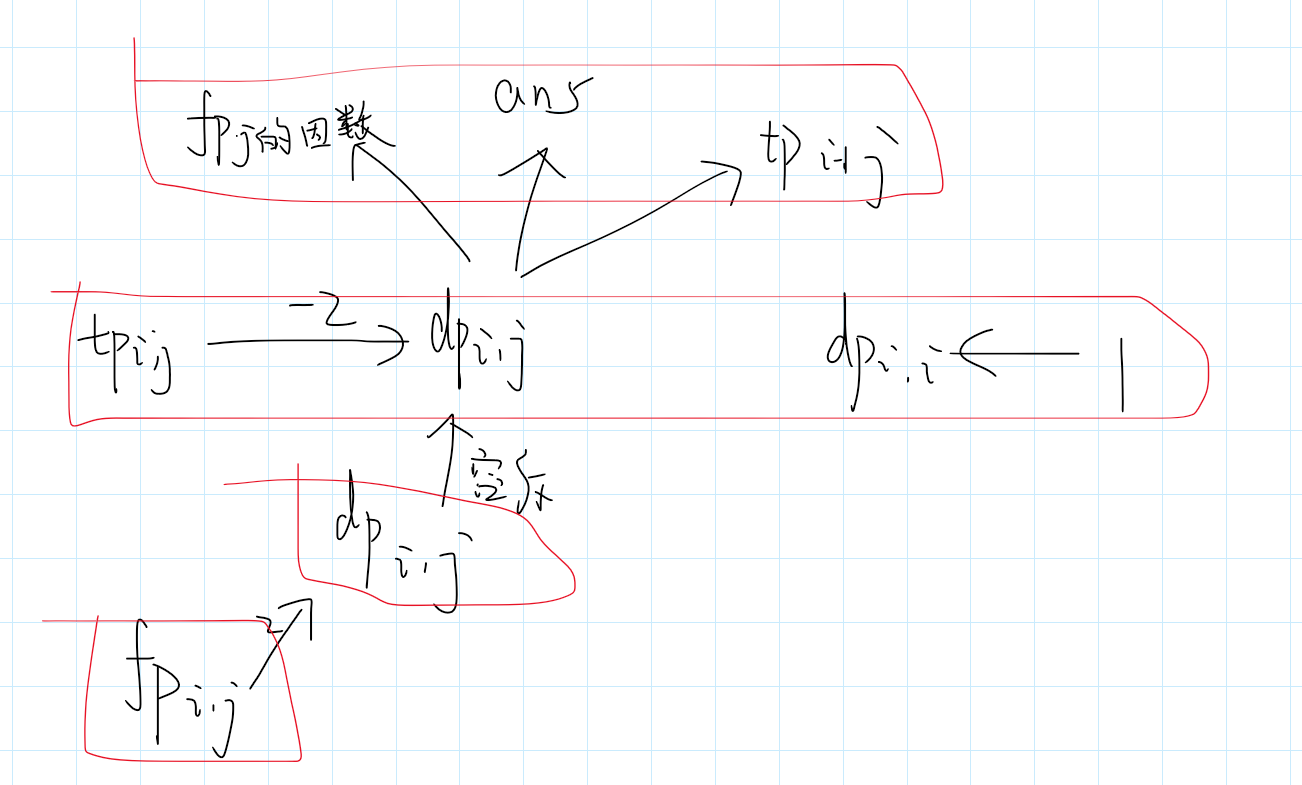 fp j的因数
ans
tp i+1,j
tp i,j
-2
dp i,j
dp i,i
1
容斥
dp i,j
2
fp i,j